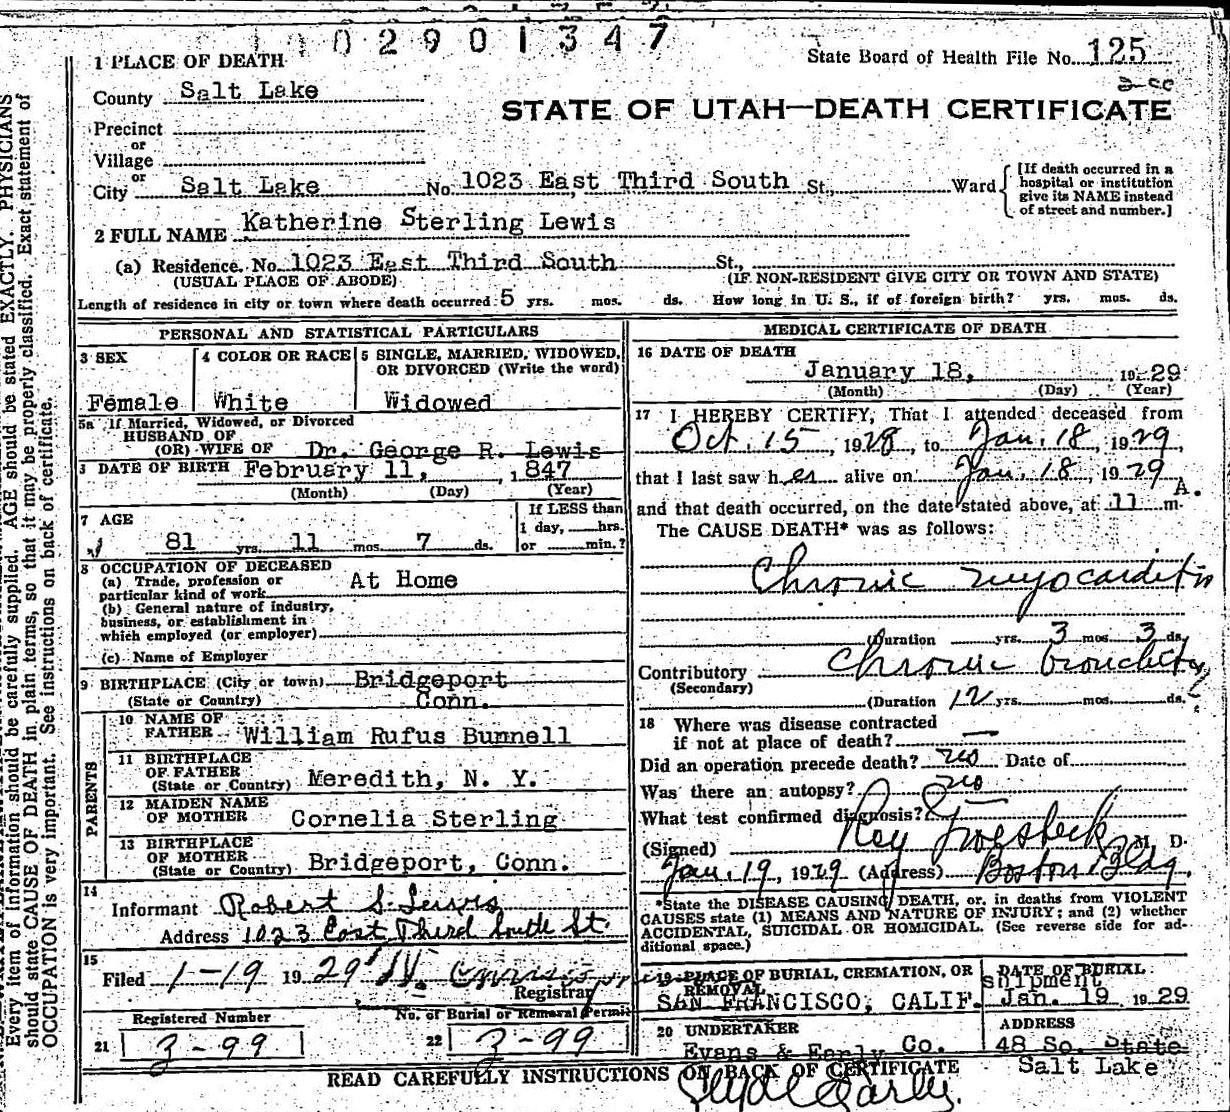 02901347
State Board of Health File No. 125
1 PLACE OF DEATH
County Salt Lake
STATE OF UTAH—DEATH CERTIFICATE
Precinct
or
Village
or
City Salt Lake No. 1023 East Third South St., Ward
[If death occurred in a
hospital or institution
give its NAME instead
of street and number.]
2 FULL NAME Katherine Sterling Lewis
(a) Residence. No. 1023 East Third South St.,
(USUAL PLACE OF ABODE) (IF NON-RESIDENT GIVE CITY OR TOWN AND STATE)
Length of residence in city or town where death occurred 5 yrs. mos. ds. How long in U. S., if of foreign birth? yrs. mos. ds.
PERSONAL AND STATISTICAL PARTICULARS
3 SEX
Female
4 COLOR OR RACE
White
5 SINGLE, MARRIED, WIDOWED,
OR DIVORCED (Write the word)
Widowed
5a If Married, Widowed, or Divorced
HUSBAND OF
(OR) WIFE OF Dr. George R. Lewis
DATE OF BIRTH February 11, 1847
(Month) (Day) (Year)
7 AGE
81 yrs. 11 mos. 7 ds.
If LESS than
1 day, hrs.
or min.?
8 OCCUPATION OF DECEASED
(a) Trade, profession or
particular kind of work At Home
(b) General nature of industry,
business, or establishment in
which employed (or employer)
(c) Name of Employer
9 BIRTHPLACE (City or town) Bridgeport
(State or Country) Conn.
PARENTS
10 NAME OF
FATHER William Rufus Bunnell
11 BIRTHPLACE
OF FATHER
(State or Country) Meredith, N. Y.
12 MAIDEN NAME
OF MOTHER Cornelia Sterling
13 BIRTHPLACE
OF MOTHER
(State or Country) Bridgeport, Conn.
14
Informant Robert S. Lewis
Address 1023 East Third South St.
15
Filed 1-19 1929
Registrar
Registered Number
21 3-99
No. of Burial or Removal Permit
22 3-99
MEDICAL CERTIFICATE OF DEATH
16 DATE OF DEATH
January 18, 1929
(Month) (Day) (Year)
17 I HEREBY CERTIFY, That I attended deceased from
Oct. 15 1928, to Jan. 18, 1929
that I last saw her alive on Jan. 18 1929
and that death occurred, on the date stated above, at 11 A. m.
The CAUSE DEATH* was as follows:
Chronic myocarditis
(Duration yrs. 3 mos 3 ds.
Contributory Chronic bronchitis
(Secondary)
(Duration 12 yrs. mos. ds.
18 Where was disease contracted
if not at place of death? —
Did an operation precede death? no Date of
Was there an autopsy? no
What test confirmed diagnosis?
(Signed) Roy Groesbeck M. D.
Jan. 19, 1929 (Address) Boston Bldg.
*State the DISEASE CAUSING DEATH, or, in deaths from VIOLENT
CAUSES state (1) MEANS AND NATURE OF INJURY; and (2) whether
ACCIDENTAL, SUICIDAL OR HOMICIDAL. (See reverse side for ad-
ditional space.)
19 PLACE OF BURIAL, CREMATION, OR
REMOVAL
SAN FRANCISCO, CALIF.
DATE OF BURIAL
shipment
Jan. 19 1929
20 UNDERTAKER
Evans & Early Co.
ADDRESS
48 So. State
Salt Lake
READ CAREFULLY INSTRUCTIONS ON BACK OF CERTIFICATE
Every item of information should be carefully supplied. AGE should be stated EXACTLY. PHYSICIANS
should state CAUSE OF DEATH in plain terms, so that it may be properly classified. Exact statement of
OCCUPATION is very important. See instructions on back of certificate.